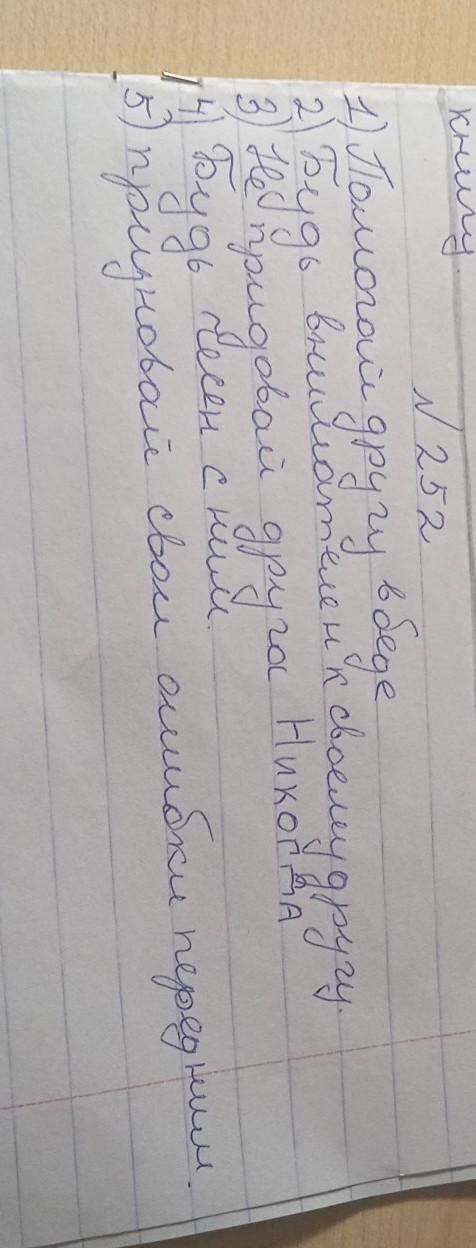 книгу.
№252
1) Помогай другу в беде
2) Будь внимателен к своему другу.
3) Не придовай друга НИКОГДА
4) Будь честен с ним.
5) признавай свои ошибки перед ним.